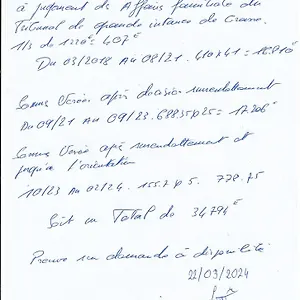 à jugement de Affaires familiales du
Tribunal de grande instance de
1/3 de 1220€ = 407€
Du 03/2018 Au 08/21. 410 x 41 = 16810€
Somme Versée après decision surendettement
Du 09/21 Au 09/23. 688.35 x 25 = 17206€
Somme Versée après surendettement et
jusqu'a l'orientation
10/23 Au 02/24. 155.7 x 5. 778.75
Soit un Total de 34794€
Preuve sur demande à disponibilité
22/03/2024